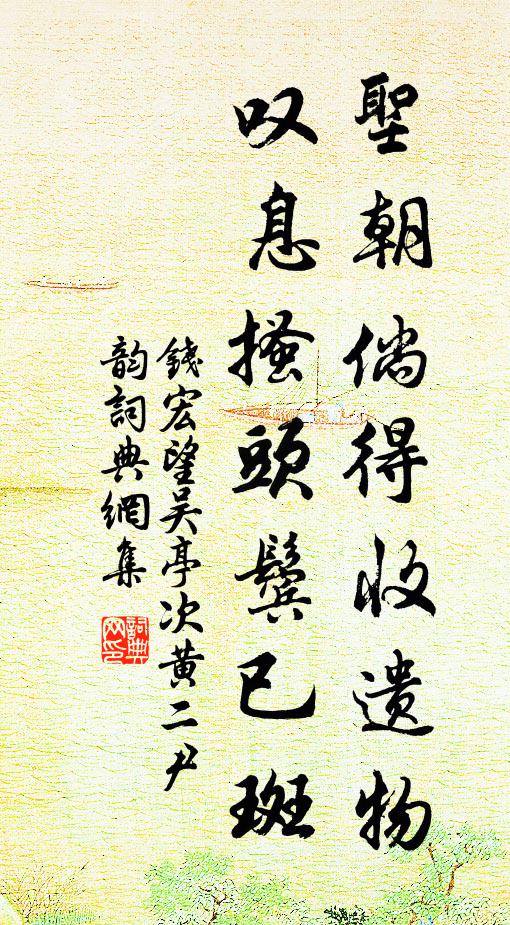 聖朝倘得收遺物
叹息搔頭鬓已斑
錢宏望吴亭次黄二尹
韵詞典網集
詞典网印